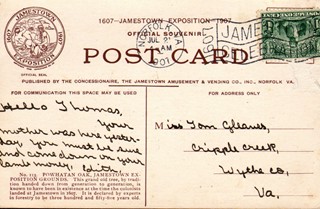 1607-JAMESTOWN EXPOSITION-1907
OFFICIAL SOUVENIR
JAMESTOWN
EXPOSITION
1607
1907
OFFICIAL SEAL
NORFOLK VA
JUL
AM
1907
POST CARD
PUBLISHED BY THE CONCESSIONAIRE, THE JAMESTOWN AMUSEMENT & VENDING CO., INC., NORFOLK, VA.
FOR COMMUNICATION THIS SPACE MAY BE USED
THE ADDRESS ONLY TO BE WRITTEN HERE
Hello Thomas,
Your
mother was here yester-
day. You must be sure
and come down on your
hand money. Edith
Miss Tom
Cripple Creek,
Wythe Co,
Va.
No. 115. POWHATAN OAK, JAMESTOWN EX-
POSITION GROUNDS. This grand old tree, by tradi-
tion handed down from generation to generation, is
known to have been in existence at the time the colonists
landed at Jamestown in 1607. It is declared by experts
in forestry to be three hundred and fifty-five years old.